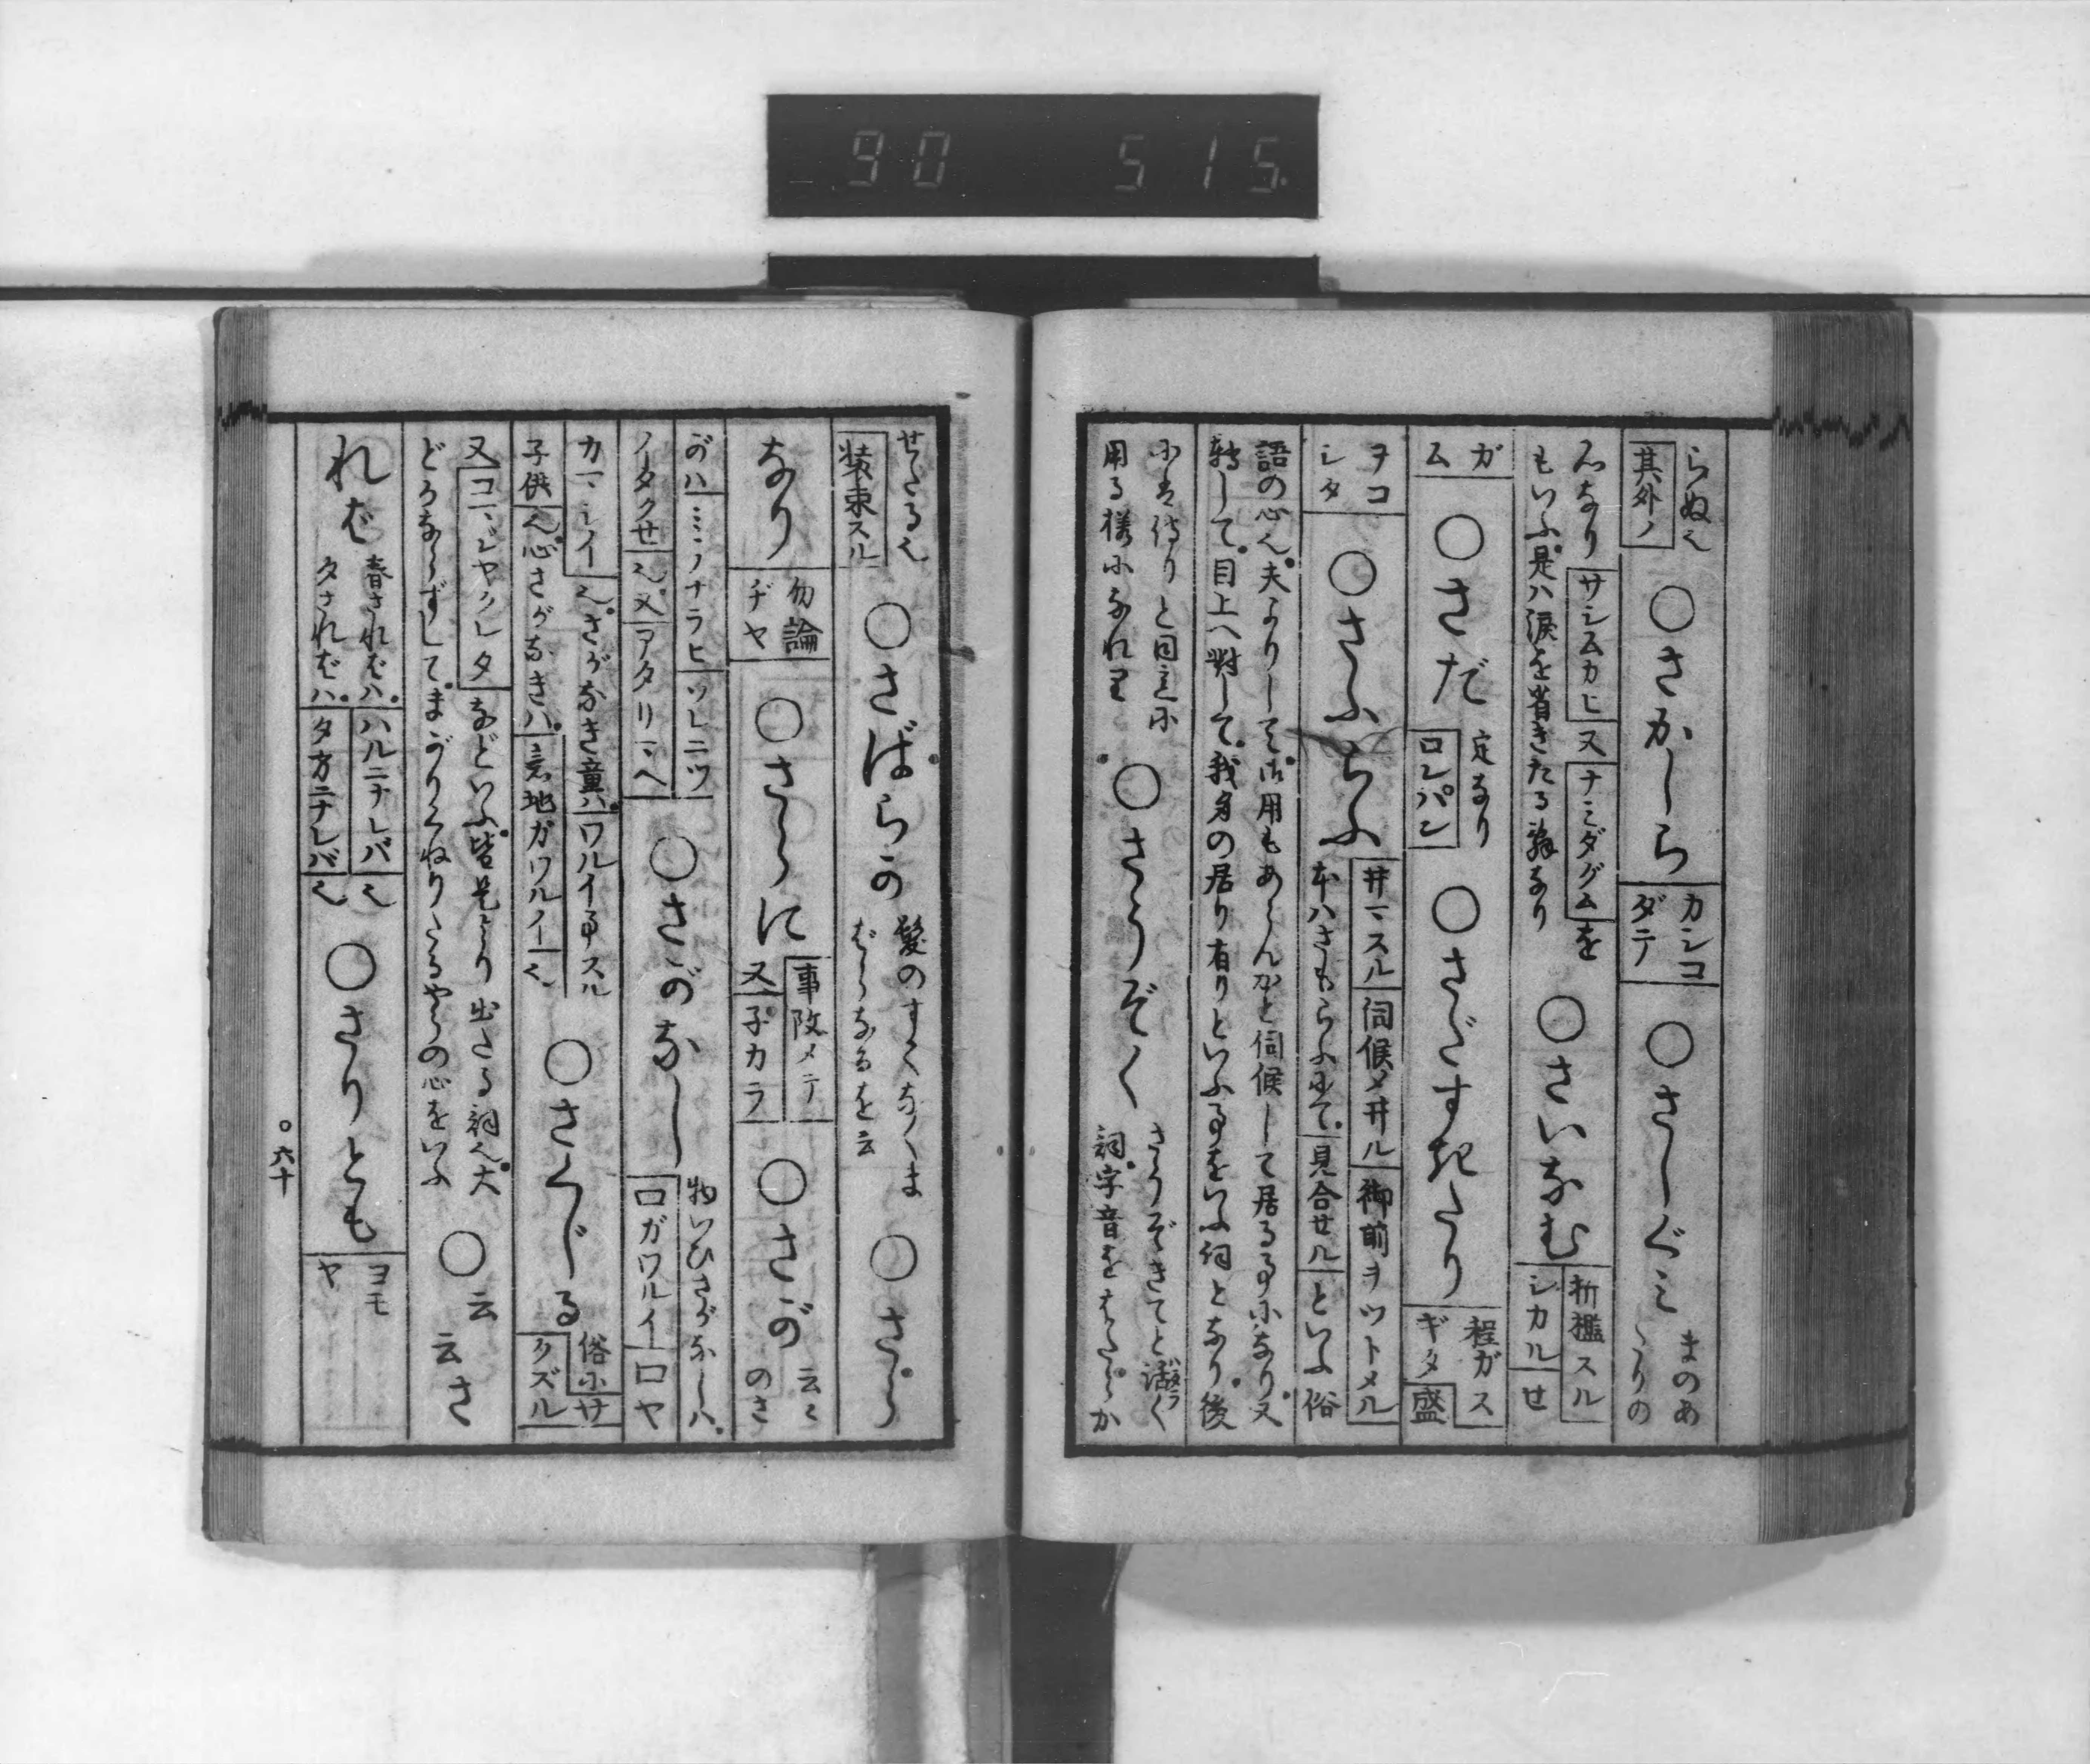 90 515.
らぬ也
其外ノ
○さかしら
カシコ
ダテ
○さしぐみ
まのあ
たりの
心なり サシムカヒ 又 ナミダグム を
もいふ是ハ涙を省きたる辞なり
○さいなむ
折檻スル
シカル せ
ガ
ム
○さだ
定なり
ロレパン
○さだすぎたり
程ガス
ギタ 盛
ヲコ
シタ
○さふらふ
井テスル 伺候メ井ル 御前ヲツトメル
本ハさもらふにて 見合セル といふ俗
語の心也夫よりして御用もあらんかと伺候して居る事になり又
転して目上へ対して我身の居り有りといふ事をいふ詞となり後
には侍りと同意に
用る様になれり
○さうぞく
さうぞきてと活く
詞字音をはたらか
せたる也
装束スル
○さばらか
髪のすくなくま
ばらなるを云
○さら
なり
勿論
ヂヤ
○さらに
事改メテ
又 子カラ
○さが
云々
のさ
がハ ミミノナラヒ ツレニツ
ノータクセ 也又 アタリマヘ
○さがなし
物いひさがなしハ
口ガワルイ 口ヤ
カマシイ 也さがなき童ハ ワルイ事スル
子供 也心さがなきハ 意地ガワルイ 也
○さくじる
俗にサ
クズル
又 コマシヤクレタ などいふ皆是より出たる詞也大
どかならずしてまがりくねりたるやうの心をいふ
○云
云さ
れば
春さればハ ハルニナレバ 也
夕さればハ 夕方ニナレバ 也
○さりとも
ヨモ
ヤ
○六十